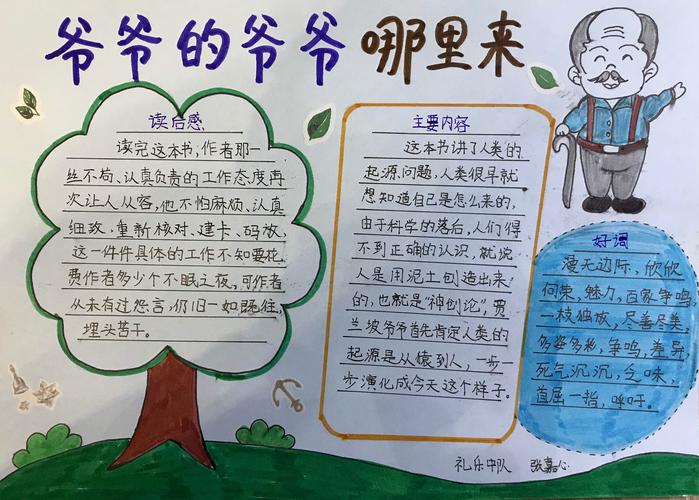 爷爷的爷爷哪里来
读后感
读完这本书,作者那一
丝不苟、认真负责的工作态度再
次让人从容,他不怕麻烦、认真
细致、重新核对、建卡、码放,
这一件件具体的工作不知要花
费作者多少个不眠之夜,可作者
从未有过怨言,仍旧一如既往,
埋头苦干。
主要内容
这本书讲了人类的
起源问题,人类很早就
想知道自己是怎么来的,
由于科学的落后,人们得
不到正确的认识,就说
人是用泥土创造出来
的,也就是“神创论”,贾
兰坡爷爷首先肯定人类的
起源是从猿到人,一步一
步演化成今天这个样子。
好词
漫无边际,欣欣
向荣,魅力,百家争鸣
一枝独放,尽善尽美
多姿多彩,争鸣,差异
死气沉沉,乏味,
首屈一指,呼吁。
礼乐中队 张嘉心